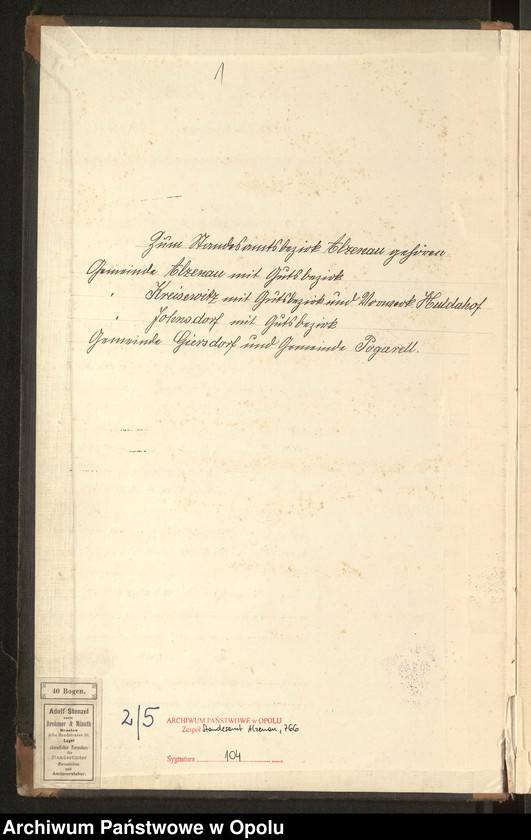 1
Zum Standesamtsbezirk Alzenau gehören
Gemeinde Alzenau mit Gutsbezirk
" Kreisewitz mit Gutsbezirk und Vorwerk Huldahof
" Johnsdorf mit Gutsbezirk
Gemeinde Giersdorf und Gemeinde Pogarell.
40 Bogen.
Adolf Stenzel
vorm.
Brehmer & Minuth
Breslau
Lager
sämtlicher Formulare
für
Standesämter
Gemeinden
und
Amtsvorsteher.
2/5
ARCHIWUM PAŃSTWOWE w OPOLU
Zespół Standesamt Alzenau, 766
Sygnatura 104
Archiwum Państwowe w Opolu